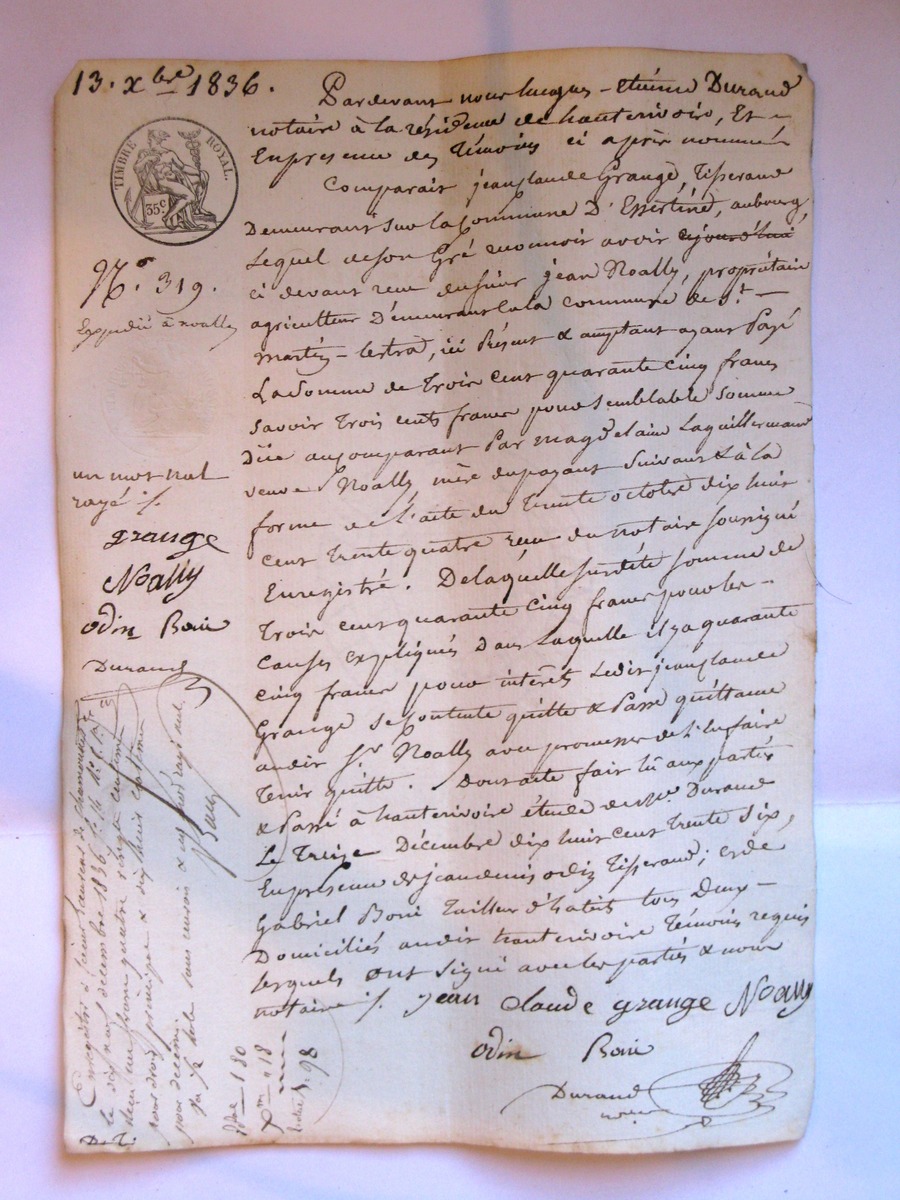 13. xbre 1836.
TIMBRE ROYAL.
35c
No. 319.
Expédié à noally
un mot nul
rayé ./.
grange
Noally
odin Boni
Durand
Pardevant nous Jacques - Etiénne Durand
notaire à la résidence de hauterivoire, Et
En présence des Témoins ci après nommés
Comparait jean claude Grange, Tisserand
Demeurant sur la Commune D'Essertine, aubourg
Lequel de son Gré reconnoit avoir aujourd'hui
ci devant reçu du sieur jean Noally, propriétaire
agriculteur Demeurant en la commune de St. —
martin - lestra, ici Présent & acceptant ayant Payé
La somme de Trois cent quarante cinq francs
savoir Trois cents francs pour semblable somme
Düe au comparant Par magdelaine Laquillermand
veuve Noally mère du payant suivant & à la
forme de l'acte du Trente octobre dix huit
cent Trente quatre reçu du notaire soussigné
Enregistré. De laquelle susdite somme de
Trois cent quarante cinq francs pour les —
causes Expliquées dans Laquelle il y a quarante
cinq francs pour intérêts Ledit jean claude
Grange se contente quitte & Passe quittance
audit Sr. Noally avec promesse de l'en faire
Tenir quitte. Dont acte fait lû aux parties
& Passé à hauterivoire étude de Me. Durand
Le Treize Décembre dix huit cent Trente Six,
En présence de jean denis odin Tisserand, et de
Gabriel Boni Tailleur d'habits tous Deux —
Domiciliés audit hauterivoire Témoins requis
lesquels ont signé avec les parties & nous
notaire ./. jean claude grange Noally
odin Boni
Durand
Enregistré à
le dix neuf décembre 1836
reçu un franc quatre vingt centimes
pour droit principal & dix huit centimes
pour décime
sans renvoi & un mot rayé nul.
1 80
18
1. 98